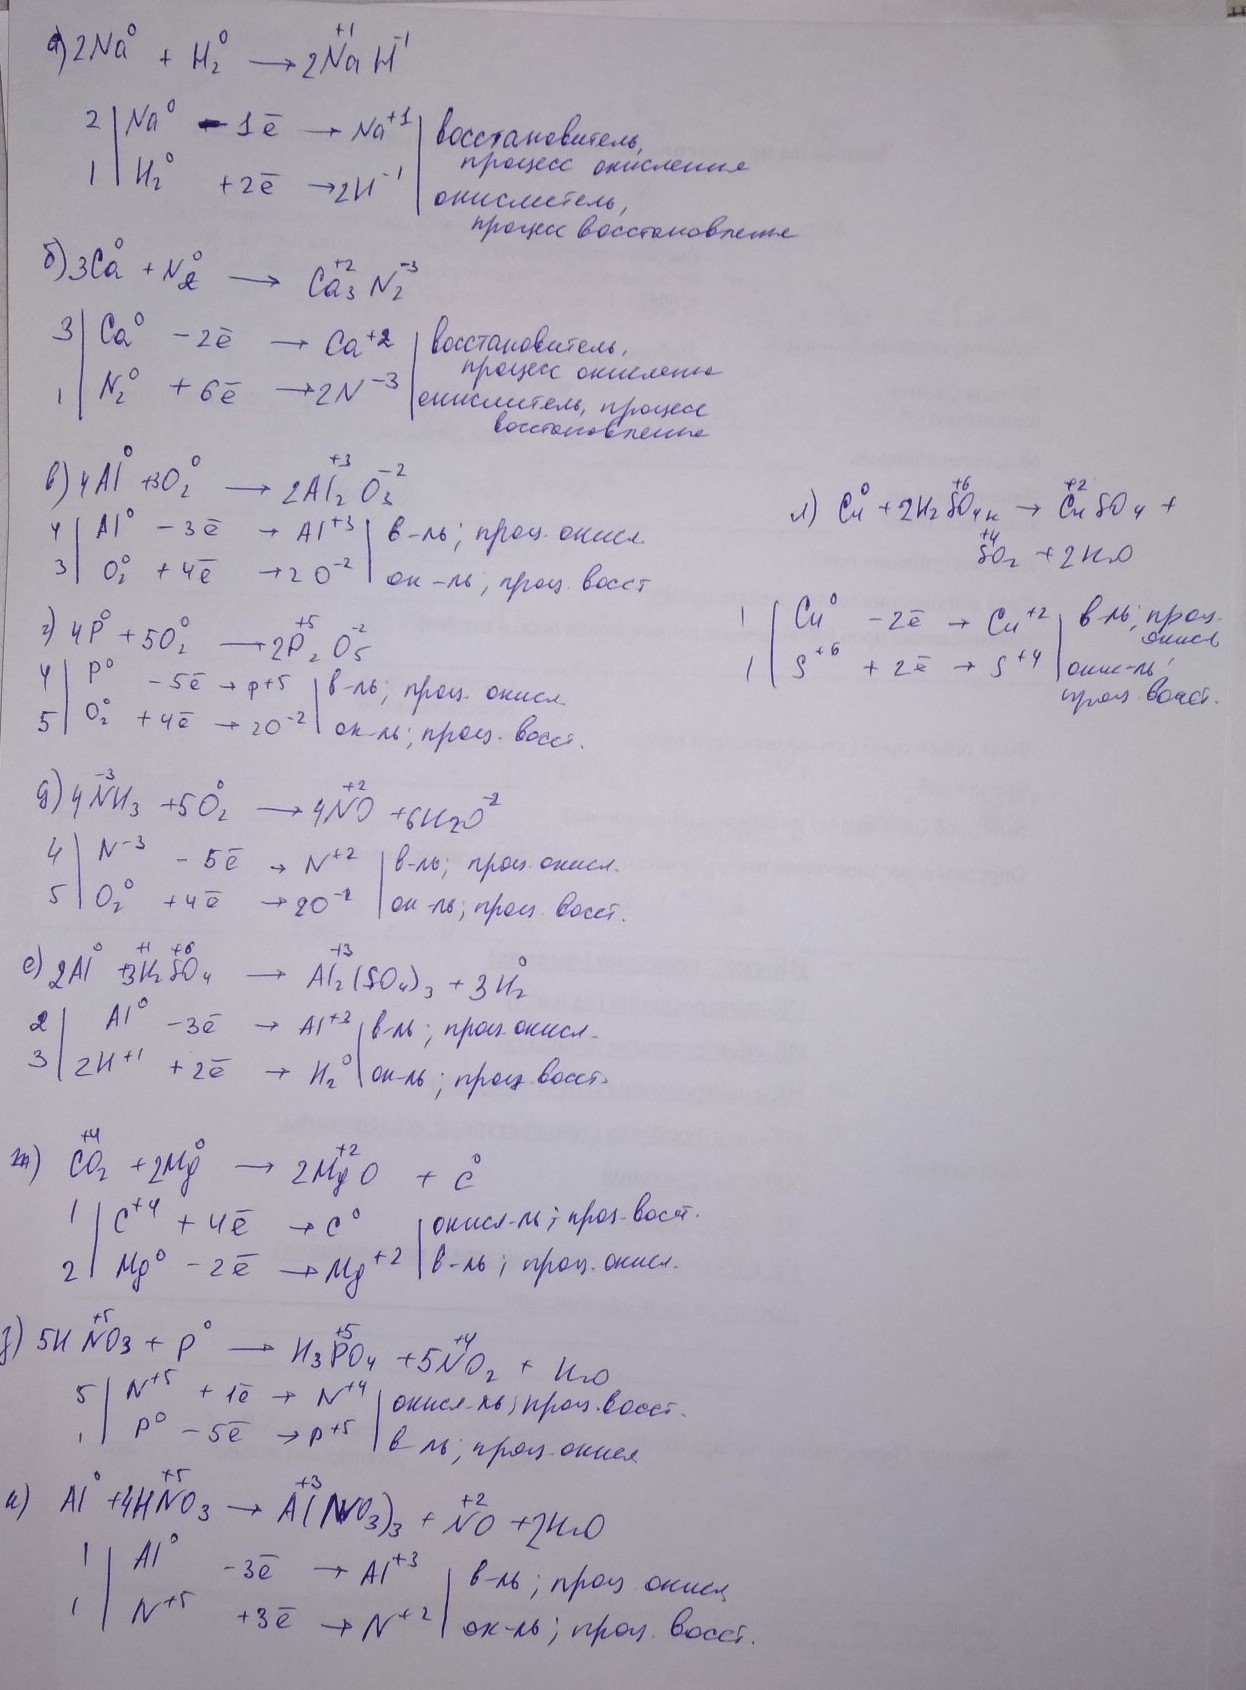 а) 2Na⁰ + H₂⁰ → 2Na⁺¹H⁻¹
2 | Na⁰ - 1ē → Na⁺¹ | восстановитель,
процесс окисления
1 | H₂⁰ +2ē → 2H⁻¹ | окислитель,
процесс восстановление
б) 3Ca⁰ + N₂⁰ → Ca₃⁺²N₂⁻³
3 | Ca⁰ - 2ē → Ca⁺² | восстановитель,
процесс окисление
1 | N₂⁰ + 6ē → 2N⁻³ | окислитель, процесс
восстановление
в) 4Al⁰ + 3O₂⁰ → 2Al₂⁺³O₃⁻²
4 | Al⁰ - 3ē → Al⁺³ | в-ль; проц. окисл.
3 | O₂⁰ + 4ē → 2O⁻² | ок-ль; проц. восст
г) 4P⁰ + 5O₂⁰ → 2P₂⁺⁵O₅⁻²
4 | P⁰ - 5ē → P+5 | в-ль; проц. окисл.
5 | O₂⁰ + 4ē → 2O⁻² | ок-ль; проц. восст.
д) 4N⁻³H₃ + 5O₂⁰ → 4N⁺²O + 6H₂O⁻²
4 | N⁻³ - 5ē → N⁺² | в-ль; проц. окисл.
5 | O₂⁰ + 4ē → 2O⁻² | ок-ль; проц. восст.
е) 2Al⁰ + 3H₂⁺¹S⁺⁶O₄ → Al₂⁺³(SO₄)₃ + 3H₂⁰
2 | Al⁰ - 3ē → Al⁺³ | в-ль; проц. окисл.
3 | 2H⁺¹ + 2ē → H₂⁰ | ок-ль; проц. восст.
ж) C⁺⁴O₂ + 2Mg⁰ → 2Mg⁺²O + C⁰
1 | C⁺⁴ + 4ē → C⁰ | окисл-ль; проц. восст.
2 | Mg⁰ - 2ē → Mg⁺² | в-ль; проц. окисл.
з) 5HN⁺⁵O₃ + P⁰ → H₃P⁺⁵O₄ + 5N⁺⁴O₂ + H₂O
5 | N⁺⁵ + 1ē → N⁺⁴ | окисл-ль; проц. восст.
1 | P⁰ - 5ē → P⁺⁵ | в-ль; проц. окисл
и) Al⁰ + 4HN⁺⁵O₃ → Al⁺³(NO₃)₃ + N⁺²O + 2H₂O
1 | Al⁰ - 3ē → Al⁺³ | в-ль; проц. окисл
1 | N⁺⁵ + 3ē → N⁺² | ок-ль; проц. восст.
л) Cu⁰ + 2H₂S⁺⁶O₄ к → Cu⁺²SO₄ +
S⁺⁴O₂ + 2H₂O
1 | Cu⁰ - 2ē → Cu⁺² | в-ль; проц.
окисл
1 | S⁺⁶ + 2ē → S⁺⁴ | окис-ль;
проц. восст.